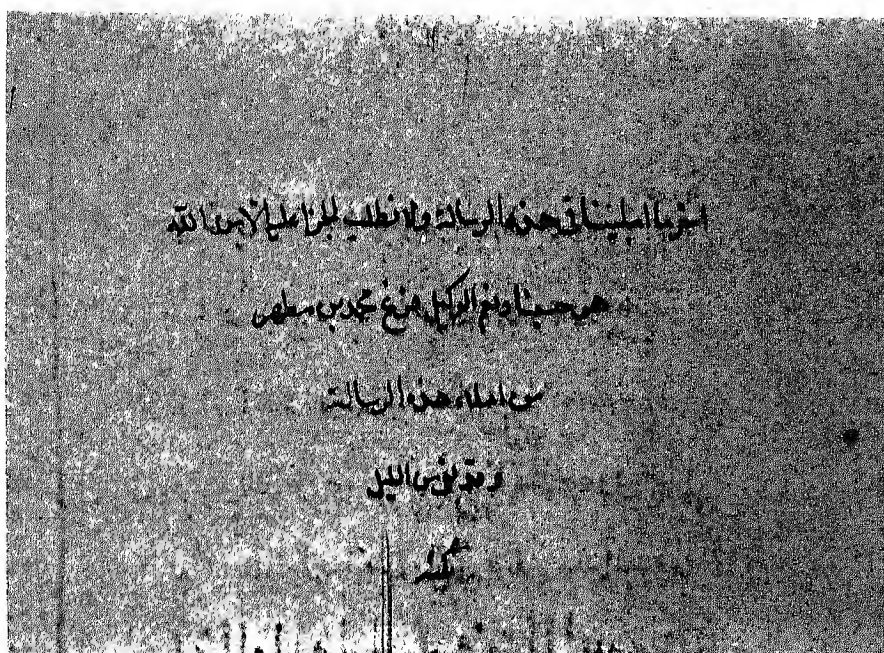 اخر ما امليناه في هذه الرسالة ولا نطلب الجزا عليها الا من الله
هو حسبنا ونعم الوكيل فرغ محمد بن مطهر
من املاء هذه الرسالة
وقد بقي من الليل